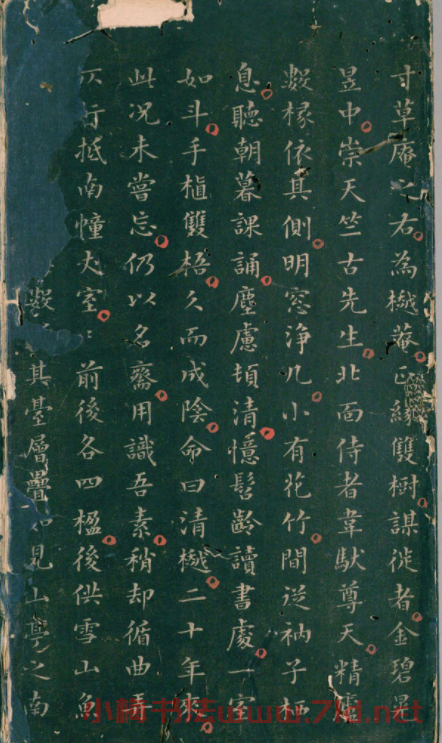 寸草庵之右為樾菴正緣雙樹謀徙者金碧晃
昱中崇天竺古先生北面侍者韋馱尊天精廬
數椽依其側明窓淨几小有花竹間從衲子栖
息聽朝暮課誦塵慮頓清憶髫齡讀書處一室
如斗手植雙梧久而成陰命曰清樾二十年來
此况未嘗忘仍以名齋用識吾素稍却循曲弄
行抵南幢大室：前後各四楹後供雪山魚
數 其臺層疊 見山亭之南
小楷书法www.7ld.net